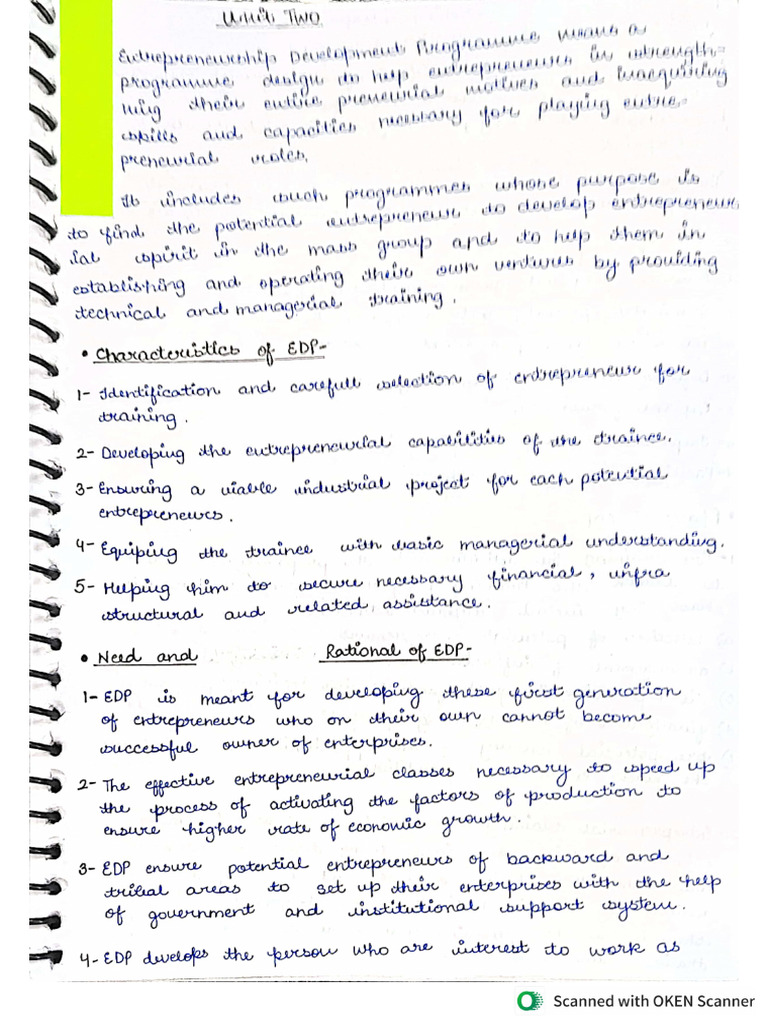 Unit Two
Entrepreneurship Development Programme means a
programme design to help entrepreneurs in strength-
ning their entire preneurial motives and inacquiring
skills and capacities necessary for playing entre-
preneurial roles.
It includes such programmes whose purpose is
to find the potential entrepreneur to develop entrepreneur
ial spirit in the mass group and to help them in
establishing and operating their own ventures by providing
technical and managerial training.
• Characteristics of EDP-
1- Identification and carefull selection of entrepreneur for
training.
2- Developing the entrepreneurial capabilities of the trainee.
3- Ensuring a viable industrial project for each potential
entrepreneurs.
4- Equiping the trainee with basic managerial understanding.
5- Helping him to secure necessary financial, infra
structural and related assistance.
• Need and Rational of EDP-
1- EDP is meant for developing these first generation
of entrepreneurs who on their own cannot become
successful owner of enterprises.
2- The effective entrepreneurial classes necessary to speed up
the process of activating the factors of production to
ensure higher rate of economic growth.
3- EDP ensure potential entrepreneurs of backward and
tribal areas to set up their enterprises with the help
of government and institutional support system.
4- EDP develops the person who are interest to work as
Scanned with OKEN Scanner